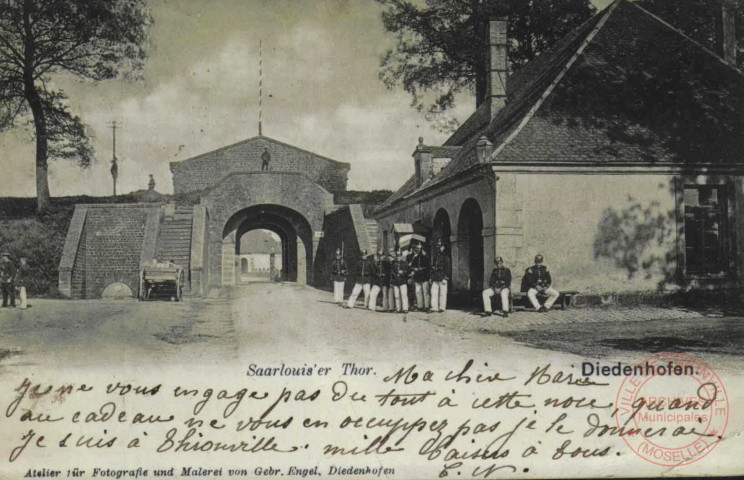 Saarlouis'er Thor.
Diedenhofen.
Ma chère Marie
Je ne vous engage pas du tout à cette noce, quand
au cadeau ne vous en occupez pas je le donnerai.
Je suis à Thionville. mille baisers à tous.
C. N.
Atelier für Fotografie und Malerei von Gebr. Engel, Diedenhofen
VILLE DE THIONVILLE
ARCHIVES
Municipales
(MOSELLE)